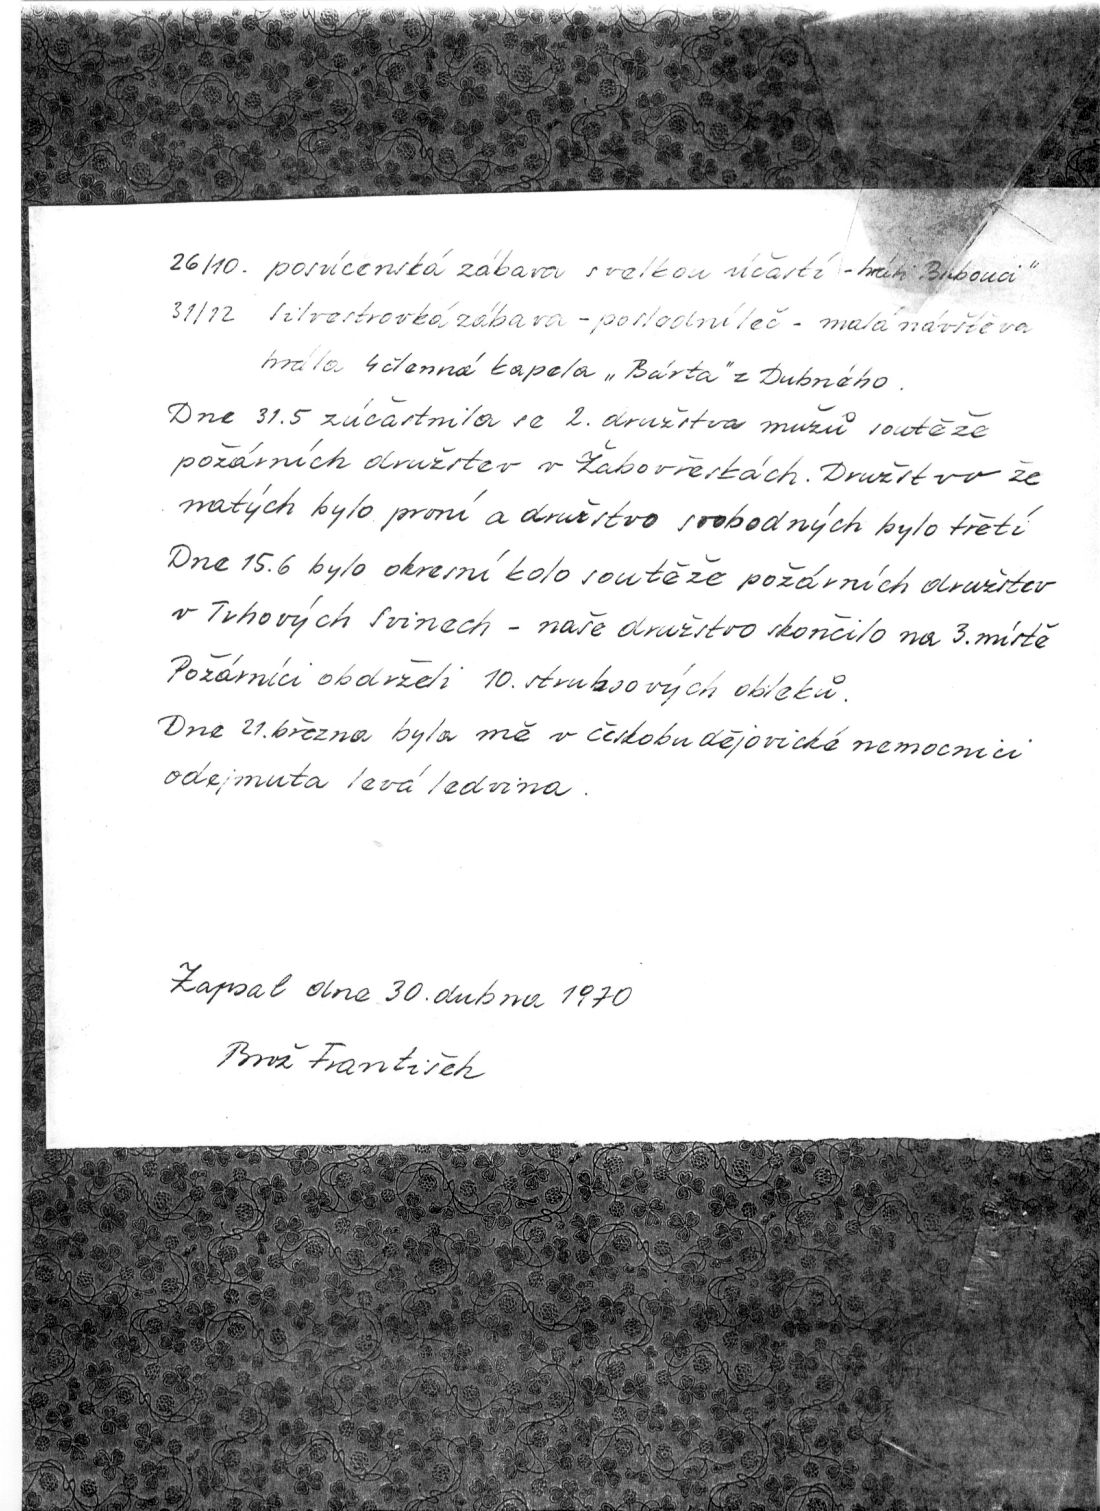 26/10. posvícenská zábava s velkou účastí - hráli Bubouci"
31/12 Silvestrovká zábava - poslodní leč - malá návštěva
hrála 4členná kapela „Bárta" z Dubného.
Dne 31.5 zúčastnila se 2. družstva mužů soutěže
požárních družstev v Žabovřeskách. Družstvo že
natých bylo první a družstvo svobodných bylo třetí
Dne 15.6 bylo okresní kolo soutěže požárních družstev
v Trhových Svinech - naše družstvo skončilo na 3. místě
Požárníci obdrželi 10. struksových obleků.
Dne 21. března byla mě v českobudějovické nemocnici
odejmuta levá ledvina.
Zapsal dne 30. dubna 1970
Brož František